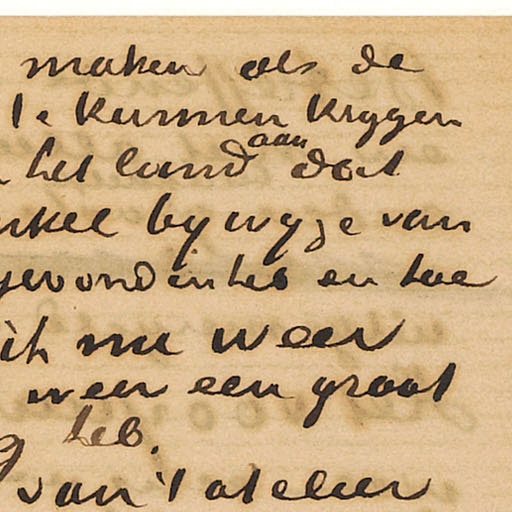 maken als de
te kunnen krygen
het land aan dat
nkel by wyze van
gewondenles en hoe
ik nu weer
weer een groot
heb.
van 't atelier